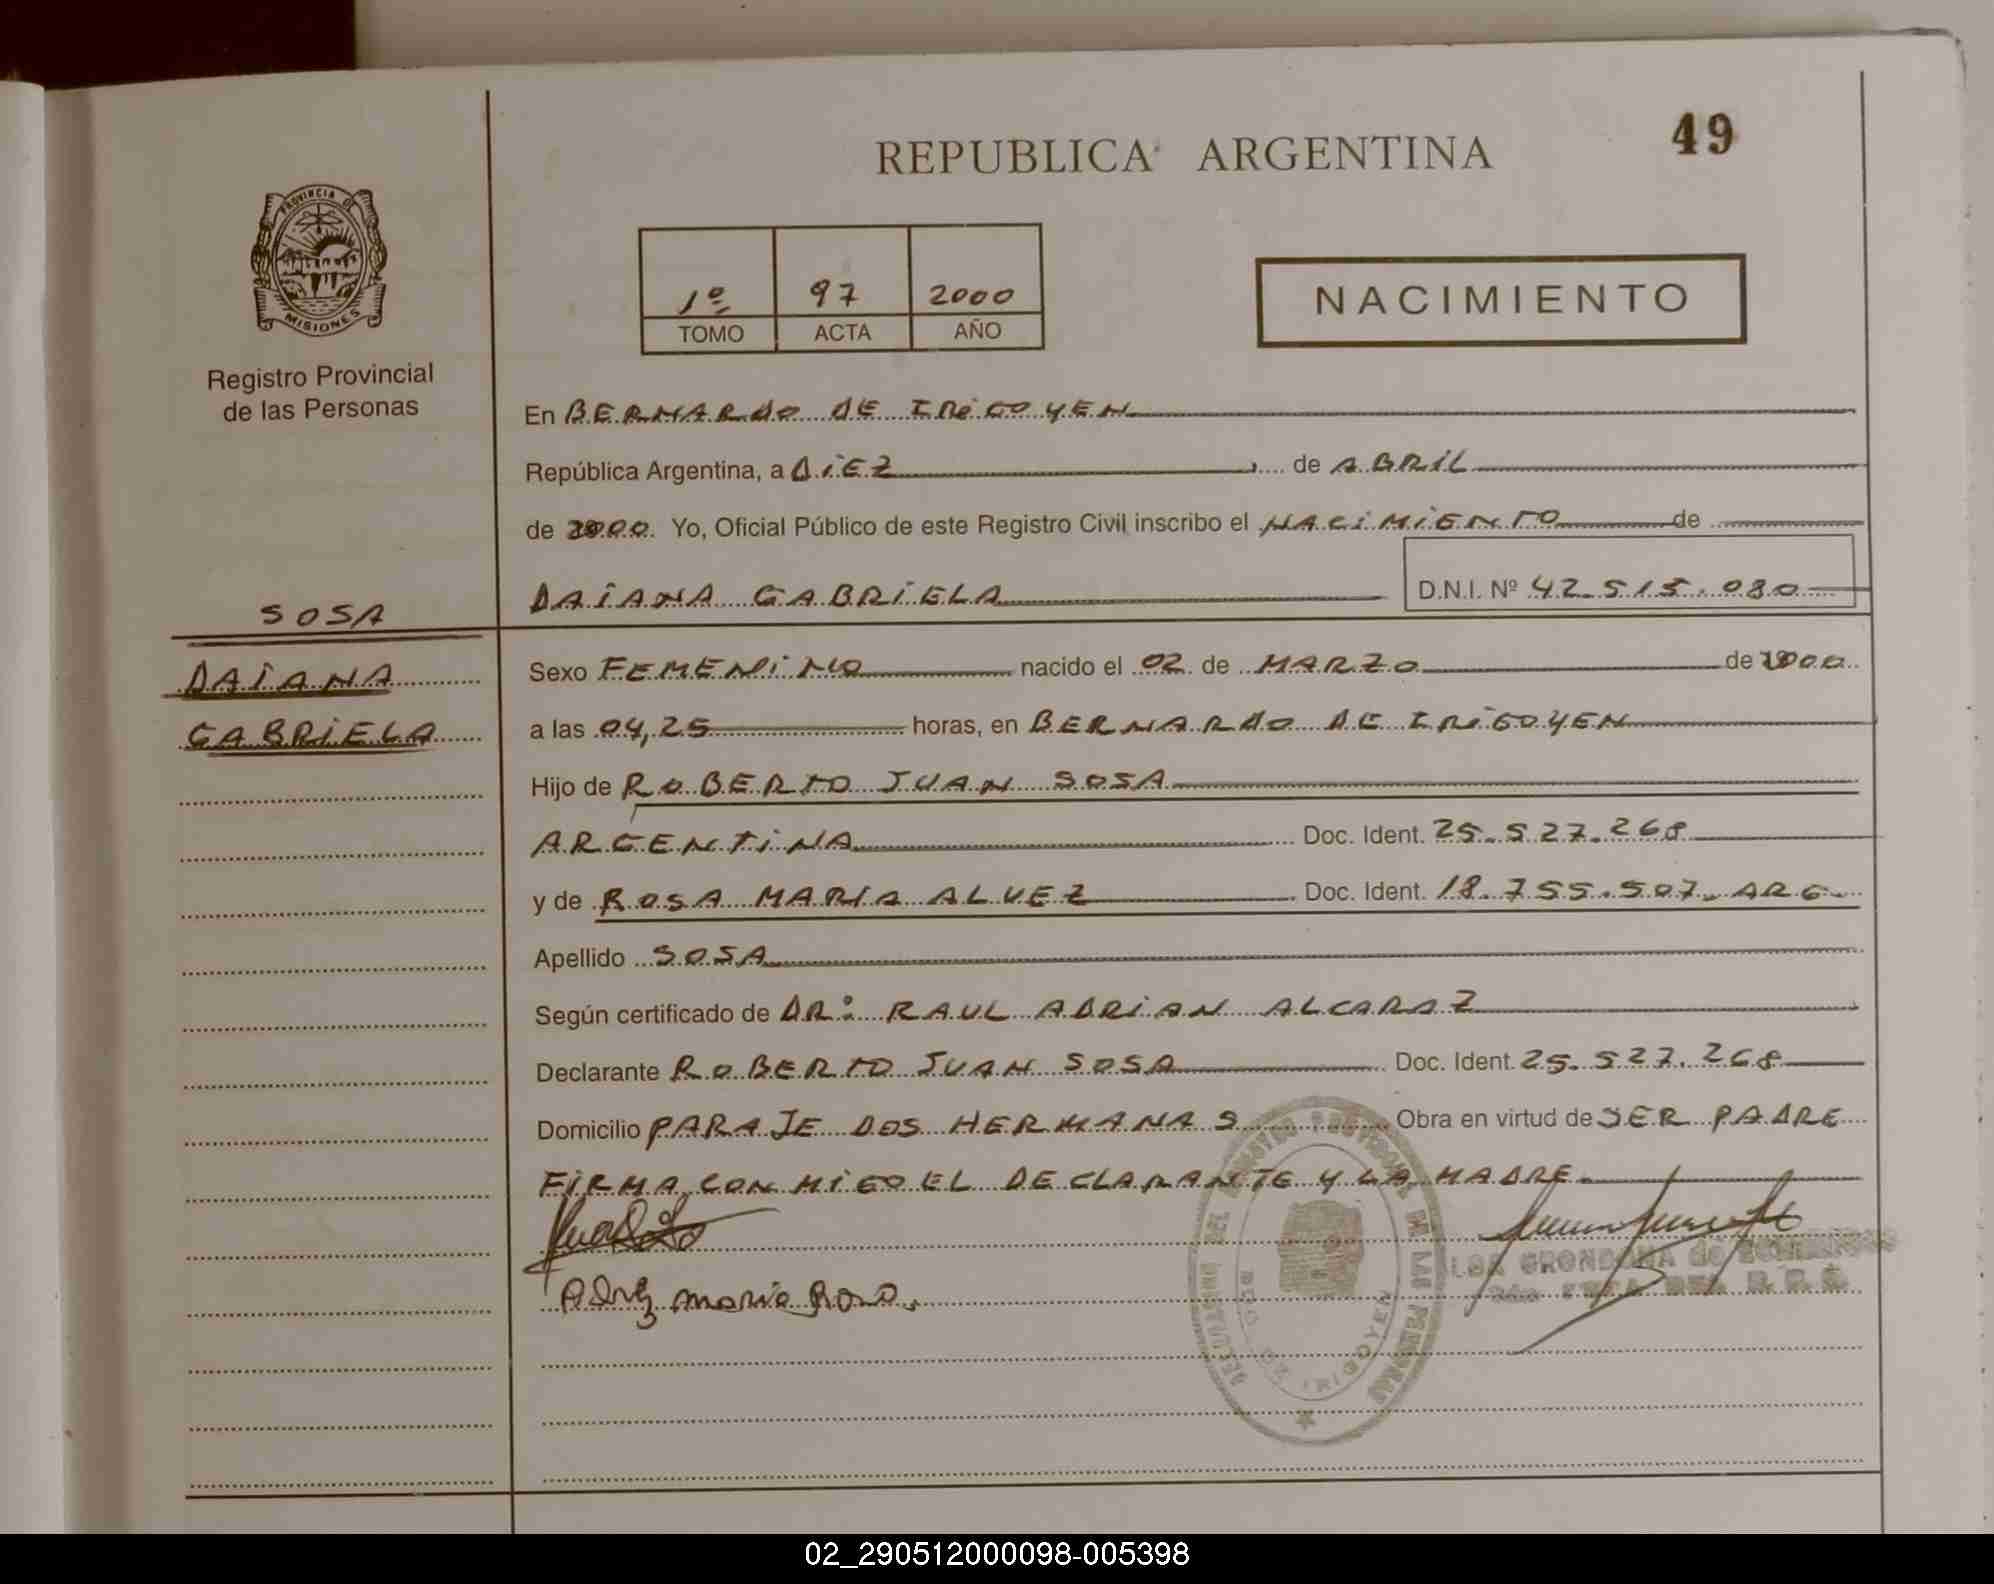 REPUBLICA ARGENTINA
49
PROVINCIA DE
MISIONES
Registro Provincial
de las Personas
1º 97 2000
TOMO ACTA AÑO
NACIMIENTO
En BERNARDO DE IRIGOYEN
República Argentina, a DIEZ de ABRIL
de 2000 Yo, Oficial Público de este Registro Civil inscribo el NACIMIENTO de
DAIANA GABRIELA D.N.I. Nº 42.515.080
SOSA
DAIANA
GABRIELA
Sexo FEMENINO nacido el 02 de MARZO de 2000
a las 04,25 horas, en BERNARDO DE IRIGOYEN
Hijo de ROBERTO JUAN SOSA
ARGENTINA Doc. Ident. 25.527.268
y de ROSA MARIA ALVEZ Doc. Ident. 18.755.507. ARG.
Apellido SOSA
Según certificado de DR: RAUL ADRIAN ALCARAZ
Declarante ROBERTO JUAN SOSA Doc. Ident. 25.527.268
Domicilio PARAJE DOS HERMANAS Obra en virtud de SER PADRE
FIRMA CONMIGO EL DECLARANTE Y LA MADRE.
Alvez maria Rosa.
DELEGACION DEL REGISTRO PROVINCIAL DE LAS PERSONAS
BDO. DE IRIGOYEN
GRONDONA de
02_290512000098-005398